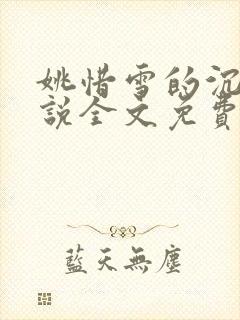 姚惜雪的沉
說全文免費
藍天無塵